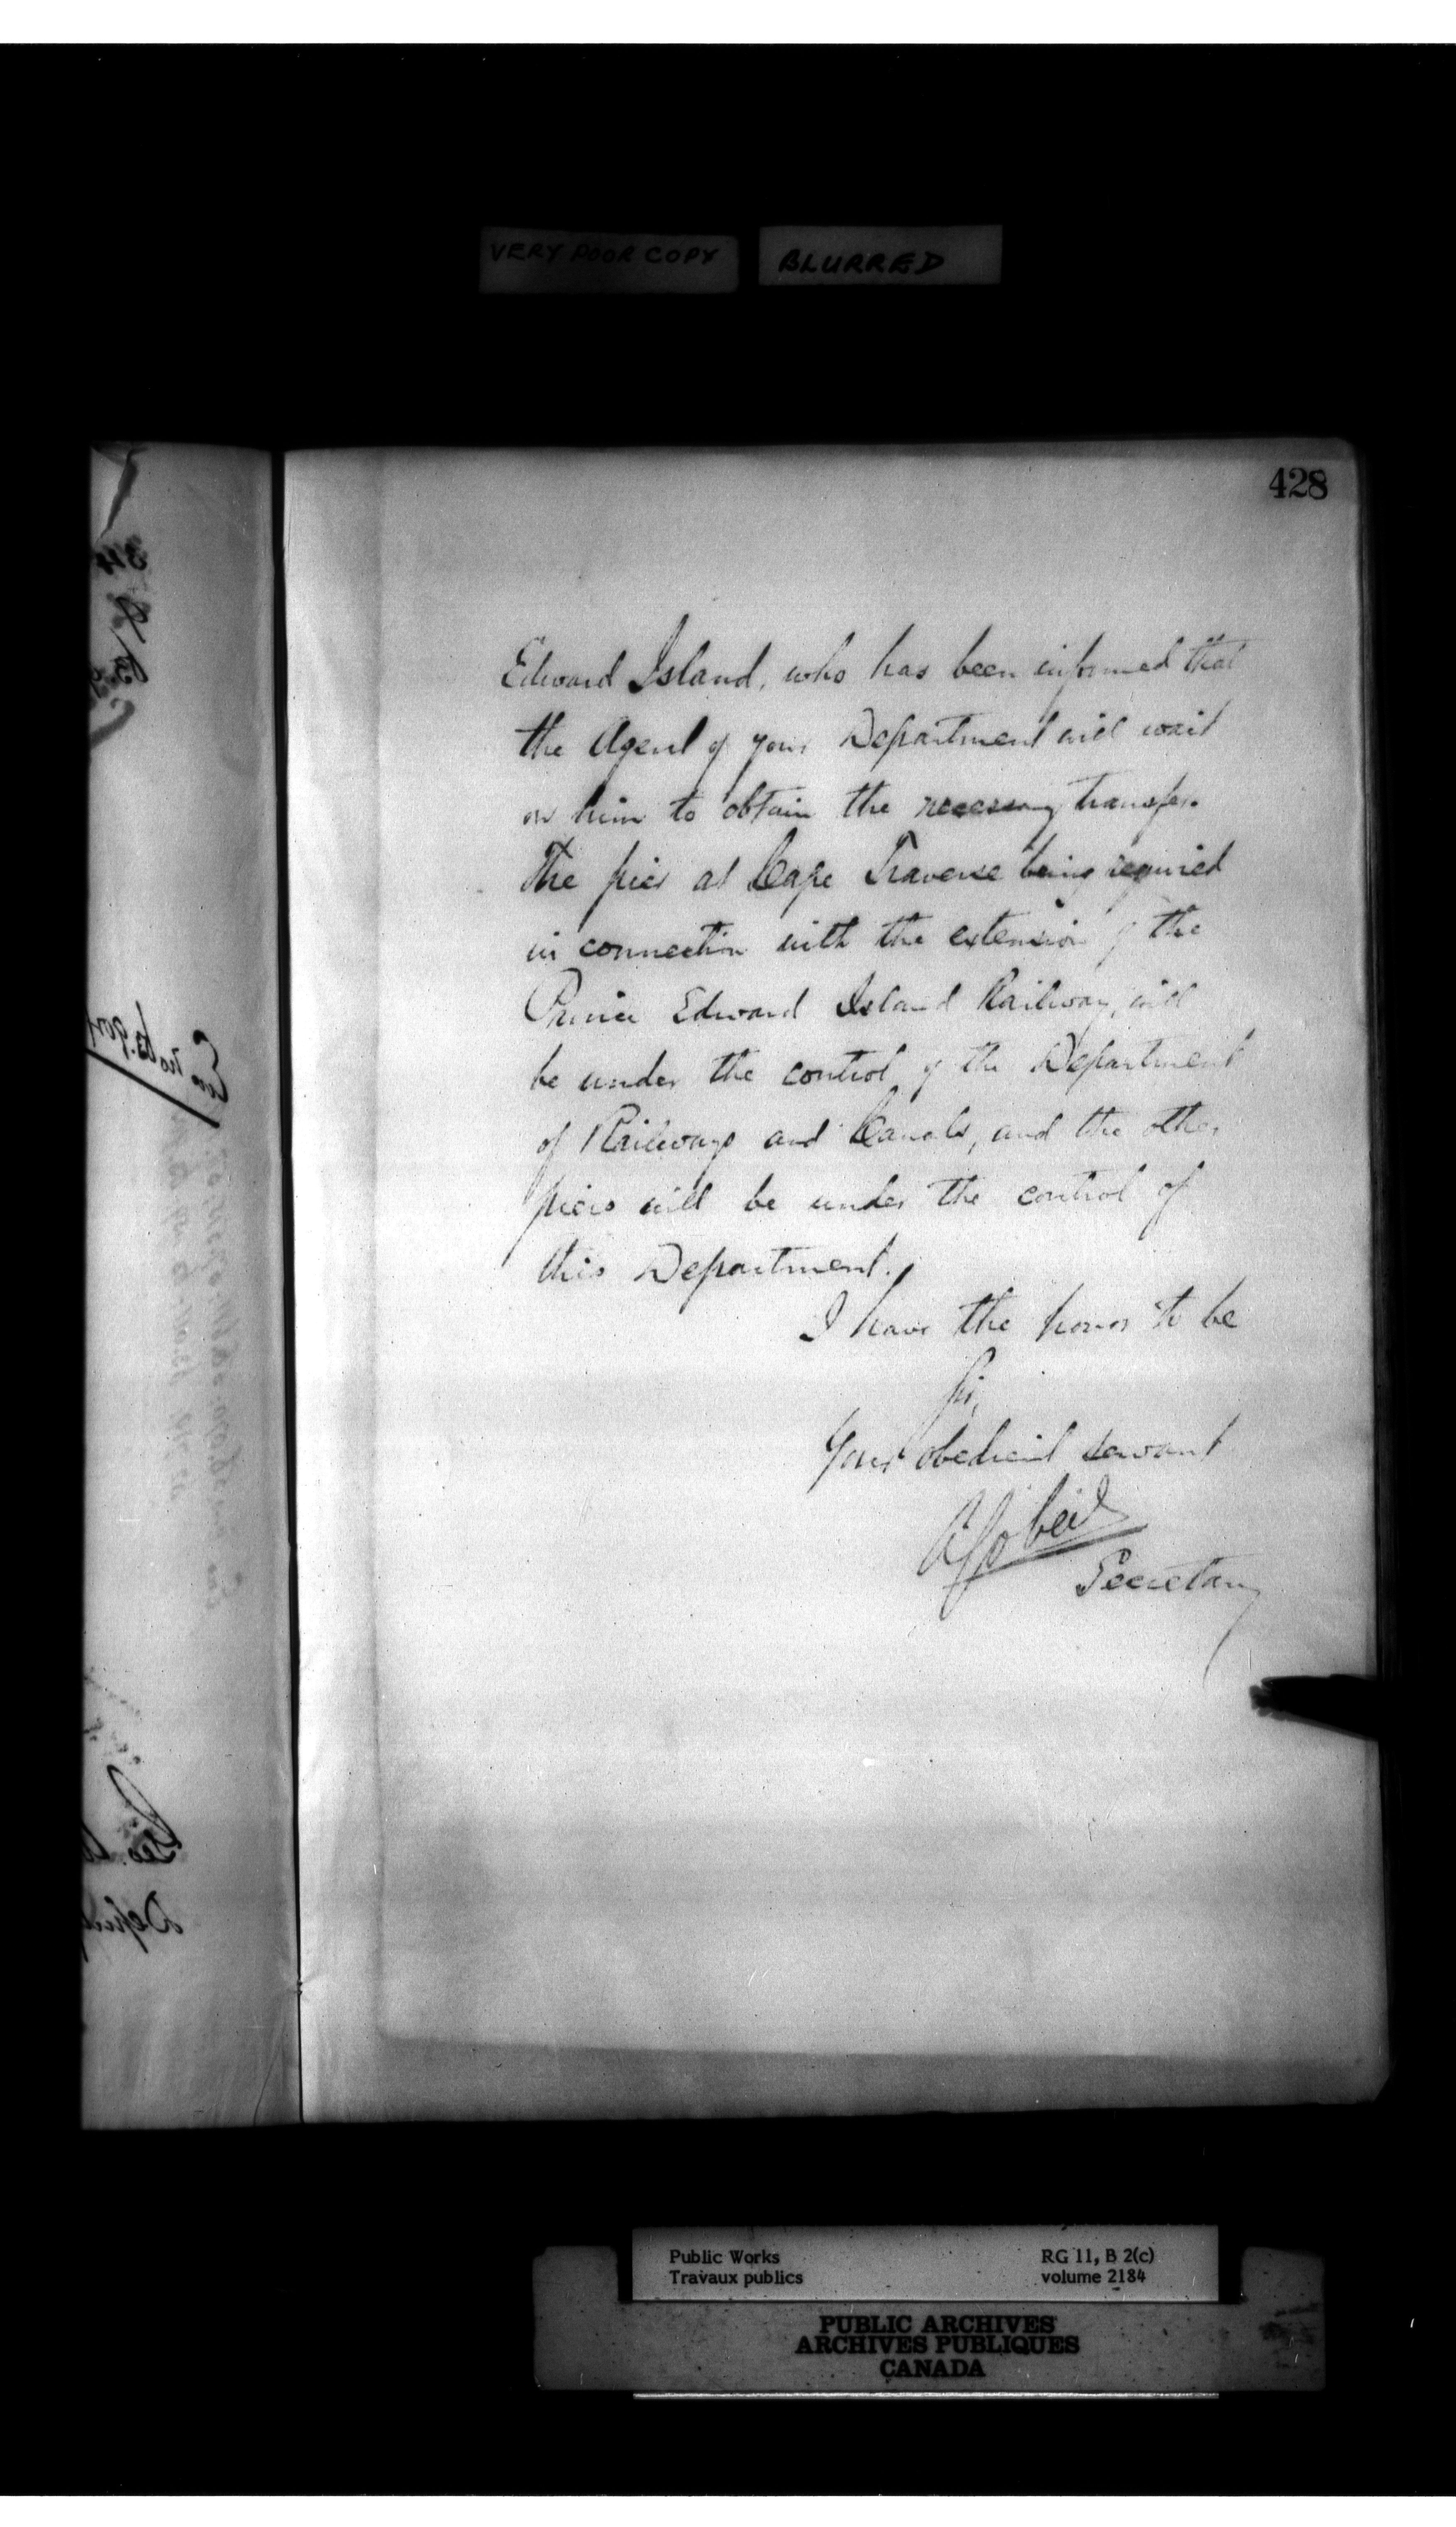 VERY POOR COPY BLURRED
428
Edward Island, who has been informed that
the Agent of your Department will wait
on him to obtain the necessary transfer.
The pier at Cape Traverse being required
in connection with the extension of the
Prince Edward Island Railway, will
be under the control of the Department
of Railways and Canals, and the other
piers will be under the control of
this Department.
I have the honor to be
Sir,
Your obedient servant
Secretary
Public Works RG 11, B 2(c)
Travaux publics volume 2184
PUBLIC ARCHIVES
ARCHIVES PUBLIQUES
CANADA